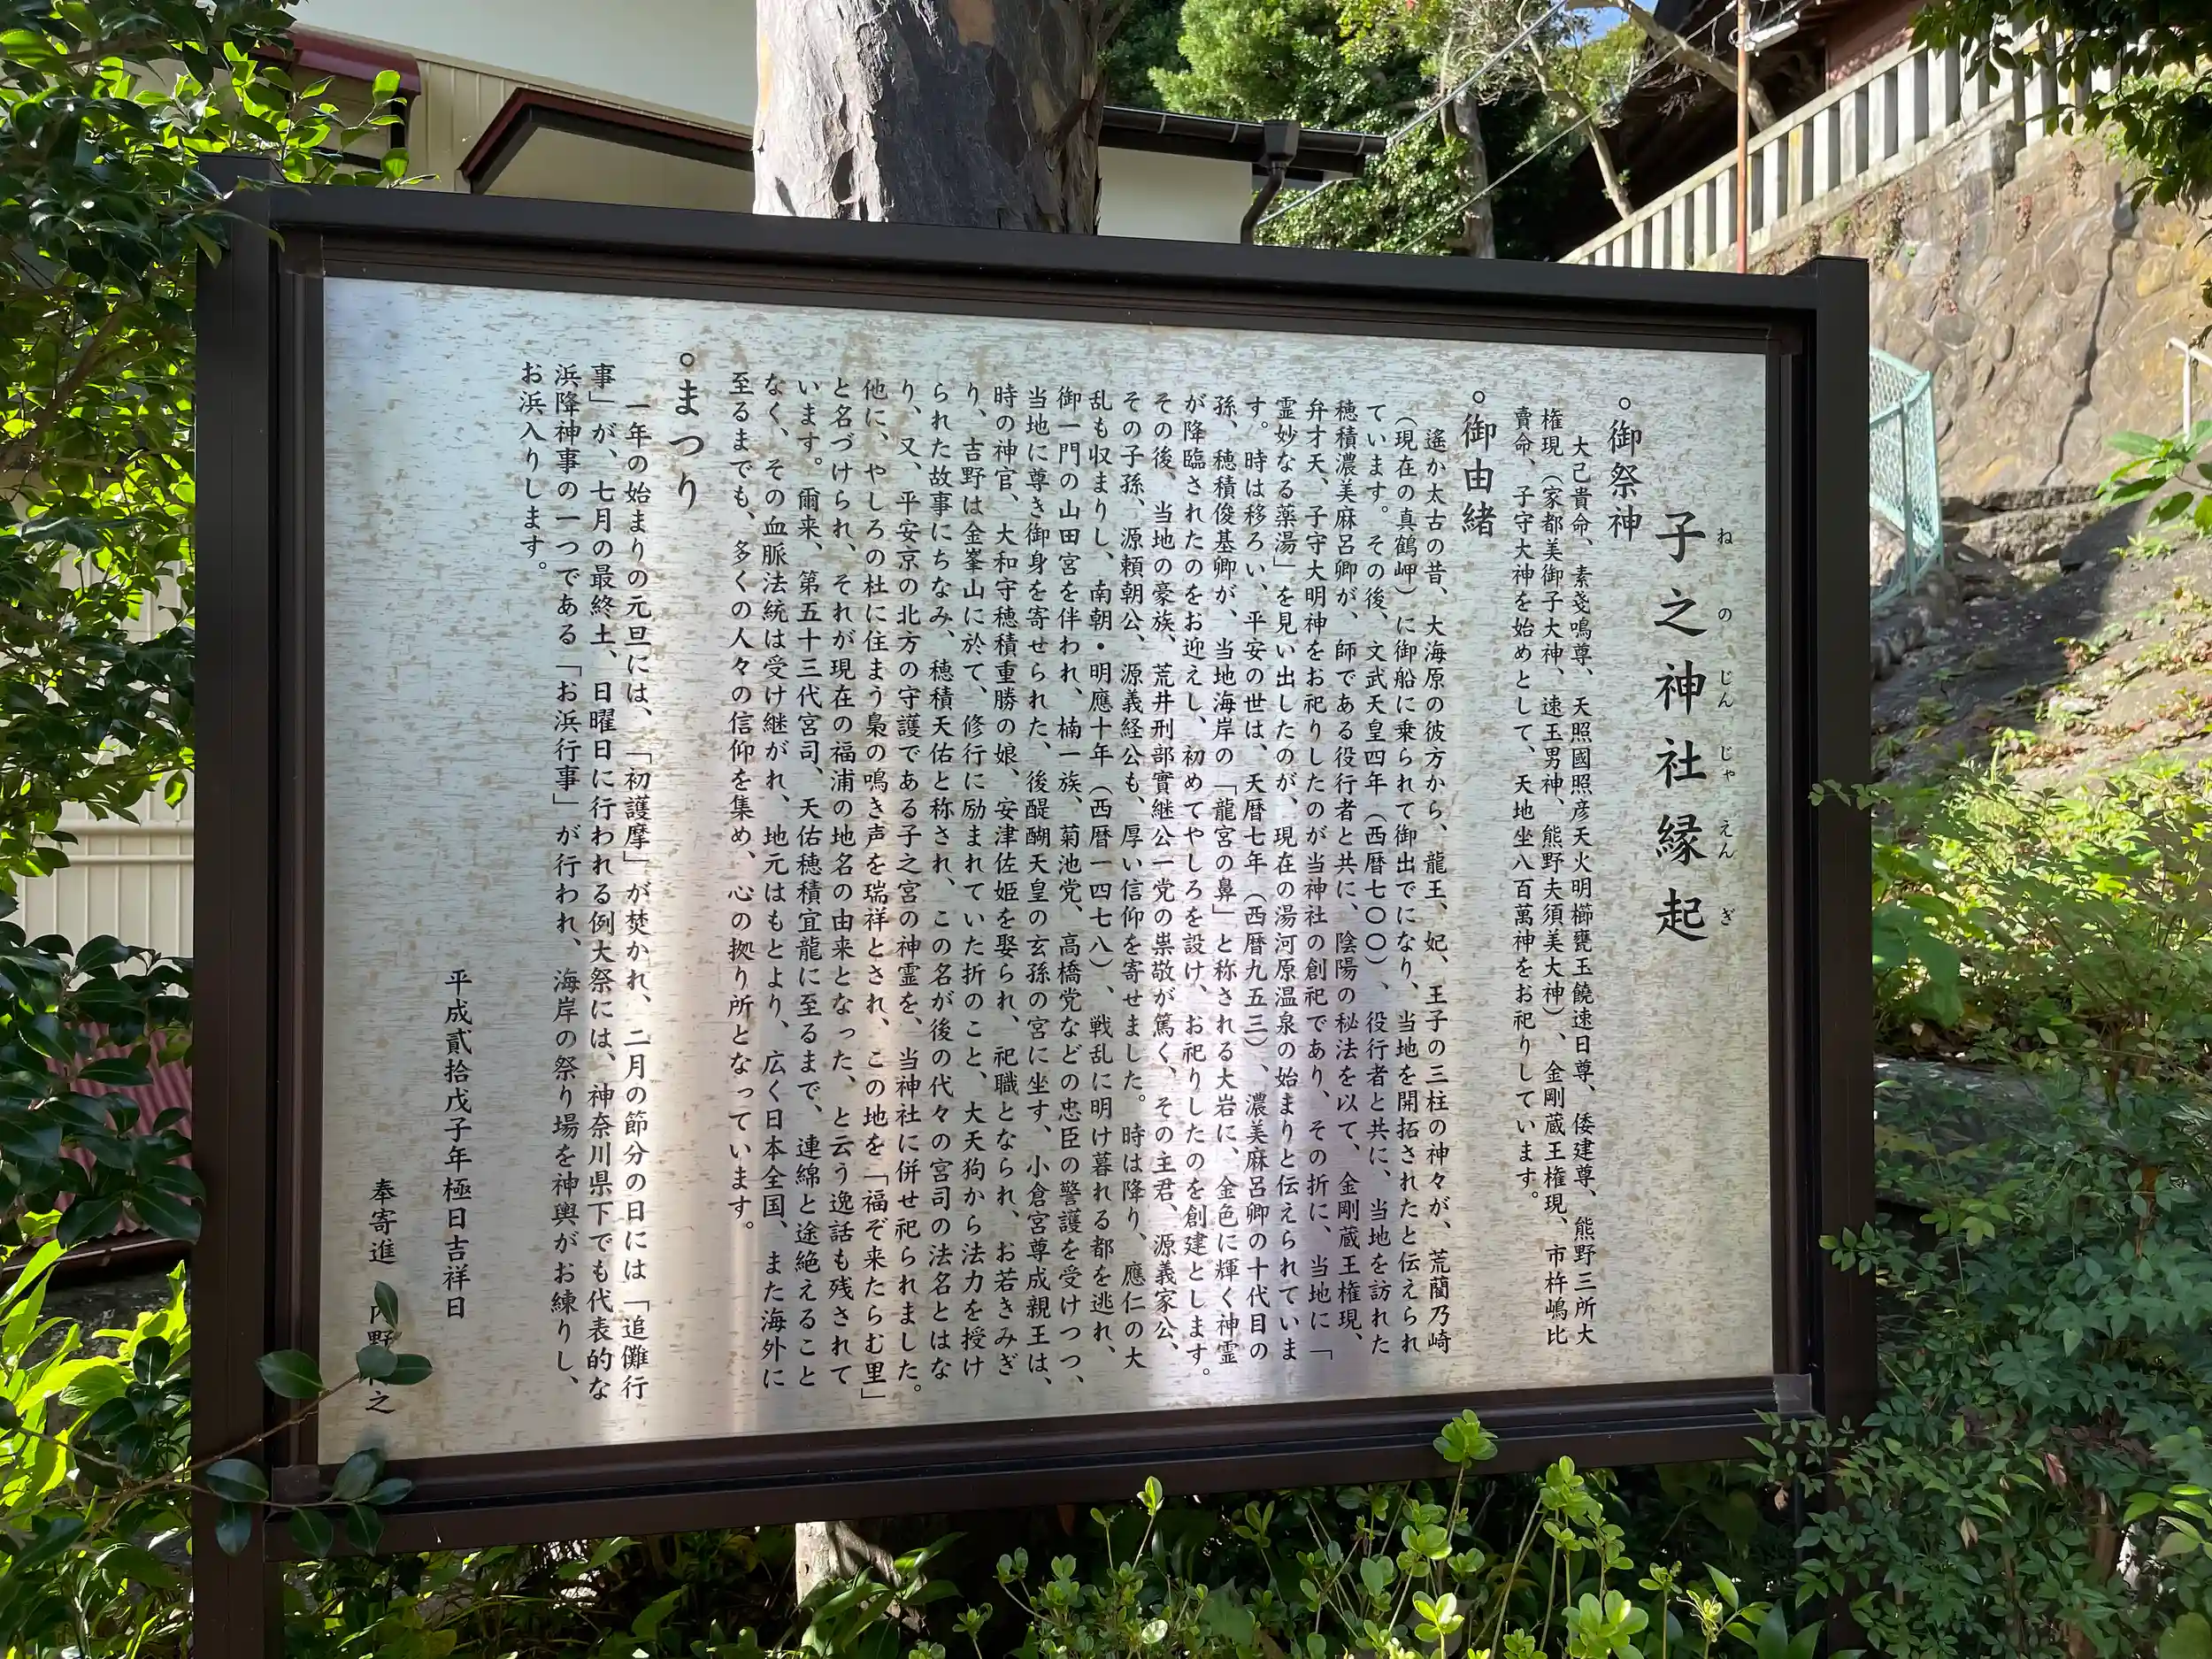 子之神社縁起
ねのじんじゃえんぎ
○御祭神
大己貴命、素戔鳴尊、天照國照彦天火明櫛甕玉饒速日尊、倭建尊、熊野三所大
権現（家都美御子大神、速玉男神、熊野夫須美大神）、金剛蔵王権現、市杵嶋比
賣命、子守大神を始めとして、天地坐八百萬神をお祀りしています。
○御由緒
遙か太古の昔、大海原の彼方から、龍王、妃、王子の三柱の神々が、荒藺乃崎
（現在の真鶴岬）に御船に乗られて御出でになり、当地を開拓されたと伝えられ
ています。その後、文武天皇四年（西暦七〇〇）、役行者と共に、当地を訪れた
穂積濃美麻呂卿が、師である役行者と共に、陰陽の秘法を以て、金剛蔵王権現、
弁才天、子守大明神をお祀りしたのが当神社の創祀であり、その折に、当地に「
霊妙なる薬湯」を見い出したのが、現在の湯河原温泉の始まりと伝えられていま
す。時は移ろい、平安の世は、天暦七年（西暦九五三）、濃美麻呂卿の十代目の
孫、穂積俊基卿が、当地海岸の「龍宮の鼻」と称される大岩に、金色に輝く神霊
が降臨されたのをお迎えし、初めてやしろを設け、お祀りしたのを創建とします。
その後、当地の豪族、荒井刑部實継公一党の崇敬が篤く、その主君、源義家公、
その子孫、源頼朝公、源義経公も、厚い信仰を寄せました。時は降り、應仁の大
乱も収まりし、南朝・明應十年（西暦一四七八）、戦乱に明け暮れる都を逃れ、
御一門の山田宮を伴われ、楠一族、菊池党、高橋党などの忠臣の警護を受けつつ、
当地に尊き御身を寄せられた、後醍醐天皇の玄孫の宮に坐す、小倉宮尊成親王は、
時の神官、大和守穂積重勝の娘、安津佐姫を娶られ、祀職となられ、お若きみぎ
り、吉野は金峯山に於て、修行に励まれていた折のこと、大天狗から法力を授け
られた故事にちなみ、穂積天佑と称され、この名が後の代々の宮司の法名とはな
り、又、平安京の北方の守護である子之宮の神霊を、当神社に併せ祀られました。
他に、やしろの杜に住まう梟の鳴き声を瑞祥とされ、この地を「福ぞ来たらむ里」
と名づけられ、それが現在の福浦の地名の由来となった、と云う逸話も残されて
います。爾来、第五十三代宮司、天佑穂積宜龍に至るまで、連綿と途絶えること
なく、その血脈法統は受け継がれ、地元はもとより、広く日本全国、また海外に
至るまでも、多くの人々の信仰を集め、心の拠り所となっています。
○まつり
一年の始まりの元旦には、「初護摩」が焚かれ、二月の節分の日には「追儺行
事」が、七月の最終土、日曜日に行われる例大祭には、神奈川県下でも代表的な
浜降神事の一つである「お浜行事」が行われ、海岸の祭り場を神輿がお練りし、
お浜入りします。
平成貳拾戊子年極日吉祥日
奉寄進 内野 之